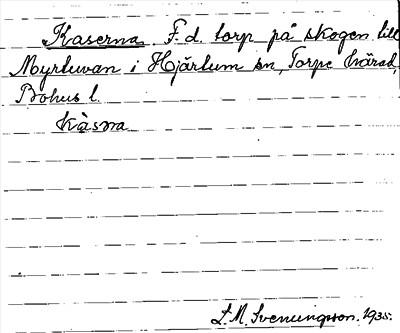 Kaserna F. d. torp på skogen till
Myrtuvan i Hjärtum sn, Torpe härad,
Bohus l.
kàsɳa
L. M. Svenungsson. 1935.